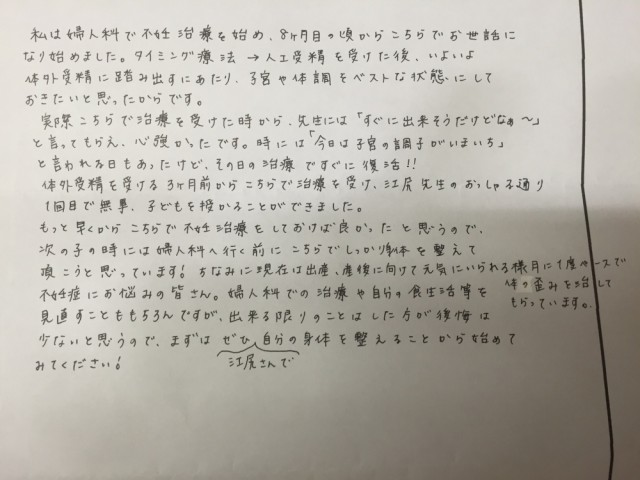 私は婦人科で不妊治療を始め、8ヶ月目の頃からこちらでお世話に
なり始めました。タイミング療法→人工受精を受けた後、いよいよ
体外受精に踏み出すにあたり、子宮や体調をベストな状態にして
おきたいと思ったからです。
実際こちらで治療を受けた時から、先生には「すぐに出来そうだけどなぁ〜」
と言ってもらえ、心強かったです。時には「今日は子宮の調子がいまいち」
と言われる日もあったけど、その日の治療ですぐに復活!!
体外受精を受ける3ヶ月前からこちらで治療を受け、江尻先生のおっしゃる通り
1回目で無事、子どもを授かることができました。
もっと早くからこちらで不妊治療をしておけば良かったと思うので、
次の子の時には婦人科へ行く前にこちらでしっかり身体を整えて
頂こうと思っています!ちなみに現在は出産、産後に向けて元気にいられる様月に1度ペースで
体の歪みを治して
もらっています。
不妊症にお悩みの皆さん。婦人科での治療や自分の食生活等を
見直すことももちろんですが、出来る限りのことはした方が後悔は
少ないと思うので、まずはぜひ自分の身体を整えることから始めて
江尻さんで
みてください!